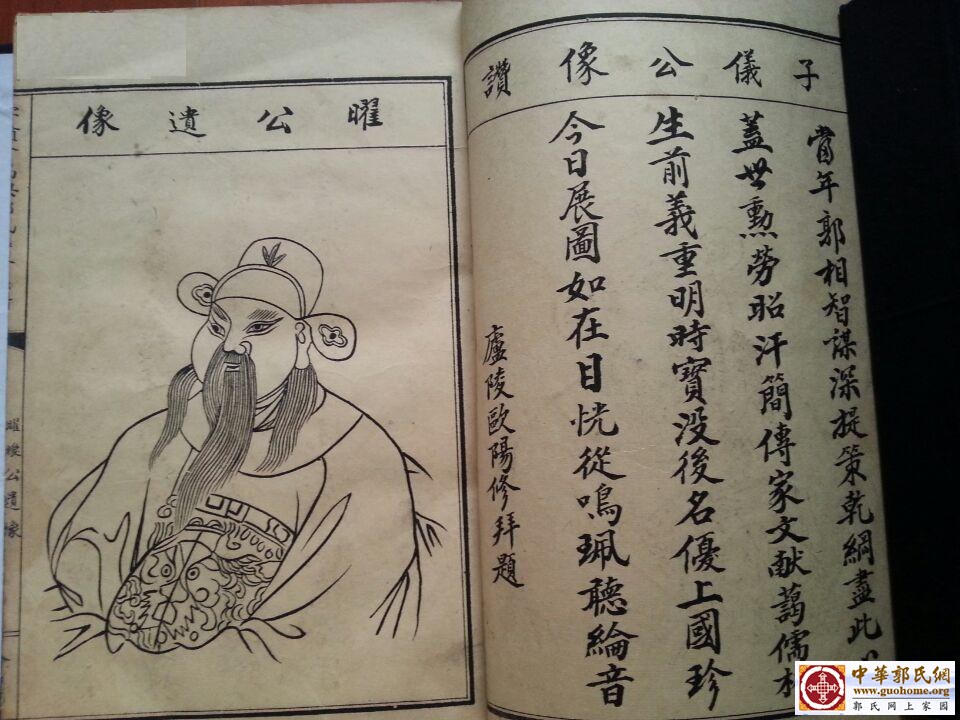 子儀公像讚
當年郭相智謀深提策乾綱盡此
蓋世勳勞昭汗簡傳家文献藹儒林
生前義重明時寶没後名優上國珍
今日展圖如在日恍從鳴珮聽綸音
廬陵歐陽修拜題
曜公遺像
曜峻公遺像
中華郭氏網
www.guohome.org
郭氏网上家园